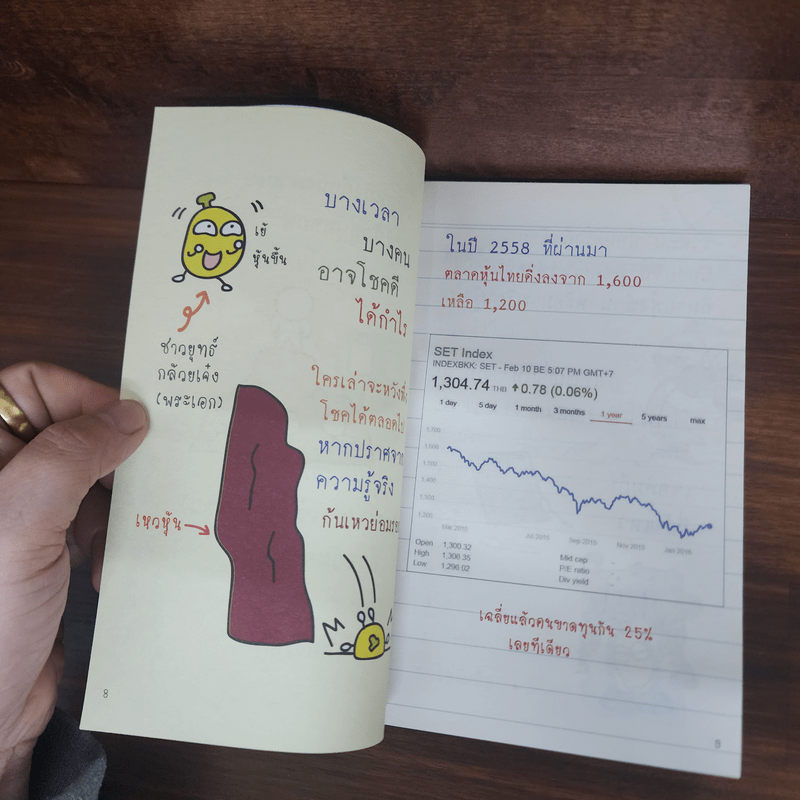 บางเวลา
บางคน
อาจโชคดี
ได้กำไร
เย้
หุ้นขึ้น
ชาวยุทธ์
กล้วยเจ๋ง
(พระเอก)
ใครเล่าจะหวังพึ่ง
โชคได้ตลอดไป
หากปราศจาก
ความรู้จริง
ก้นเหวย่อม
เหวหุ้น
8
ในปี 2558 ที่ผ่านมา
ตลาดหุ้นไทยดิ่งลงจาก 1,600
เหลือ 1,200
SET Index
INDEXBKK: SET - Feb 10 BE 5:07 PM GMT+7
1,304.74 THB ↑0.78 (0.06%)
1 day 5 day 1 month 3 months 1 year 5 years max
1,700
1,600
1,500
1,400
1,300
1,200
Mar 2015 Jul 2015 Sep 2015 Nov 2015 Jan 2016
Open 1,300.32
High 1,306.35
Low 1,296.02
Mkt cap
P/E ratio
Div yield
เฉลี่ยแล้วคนขาดทุนกัน 25%
เลยทีเดียว
9